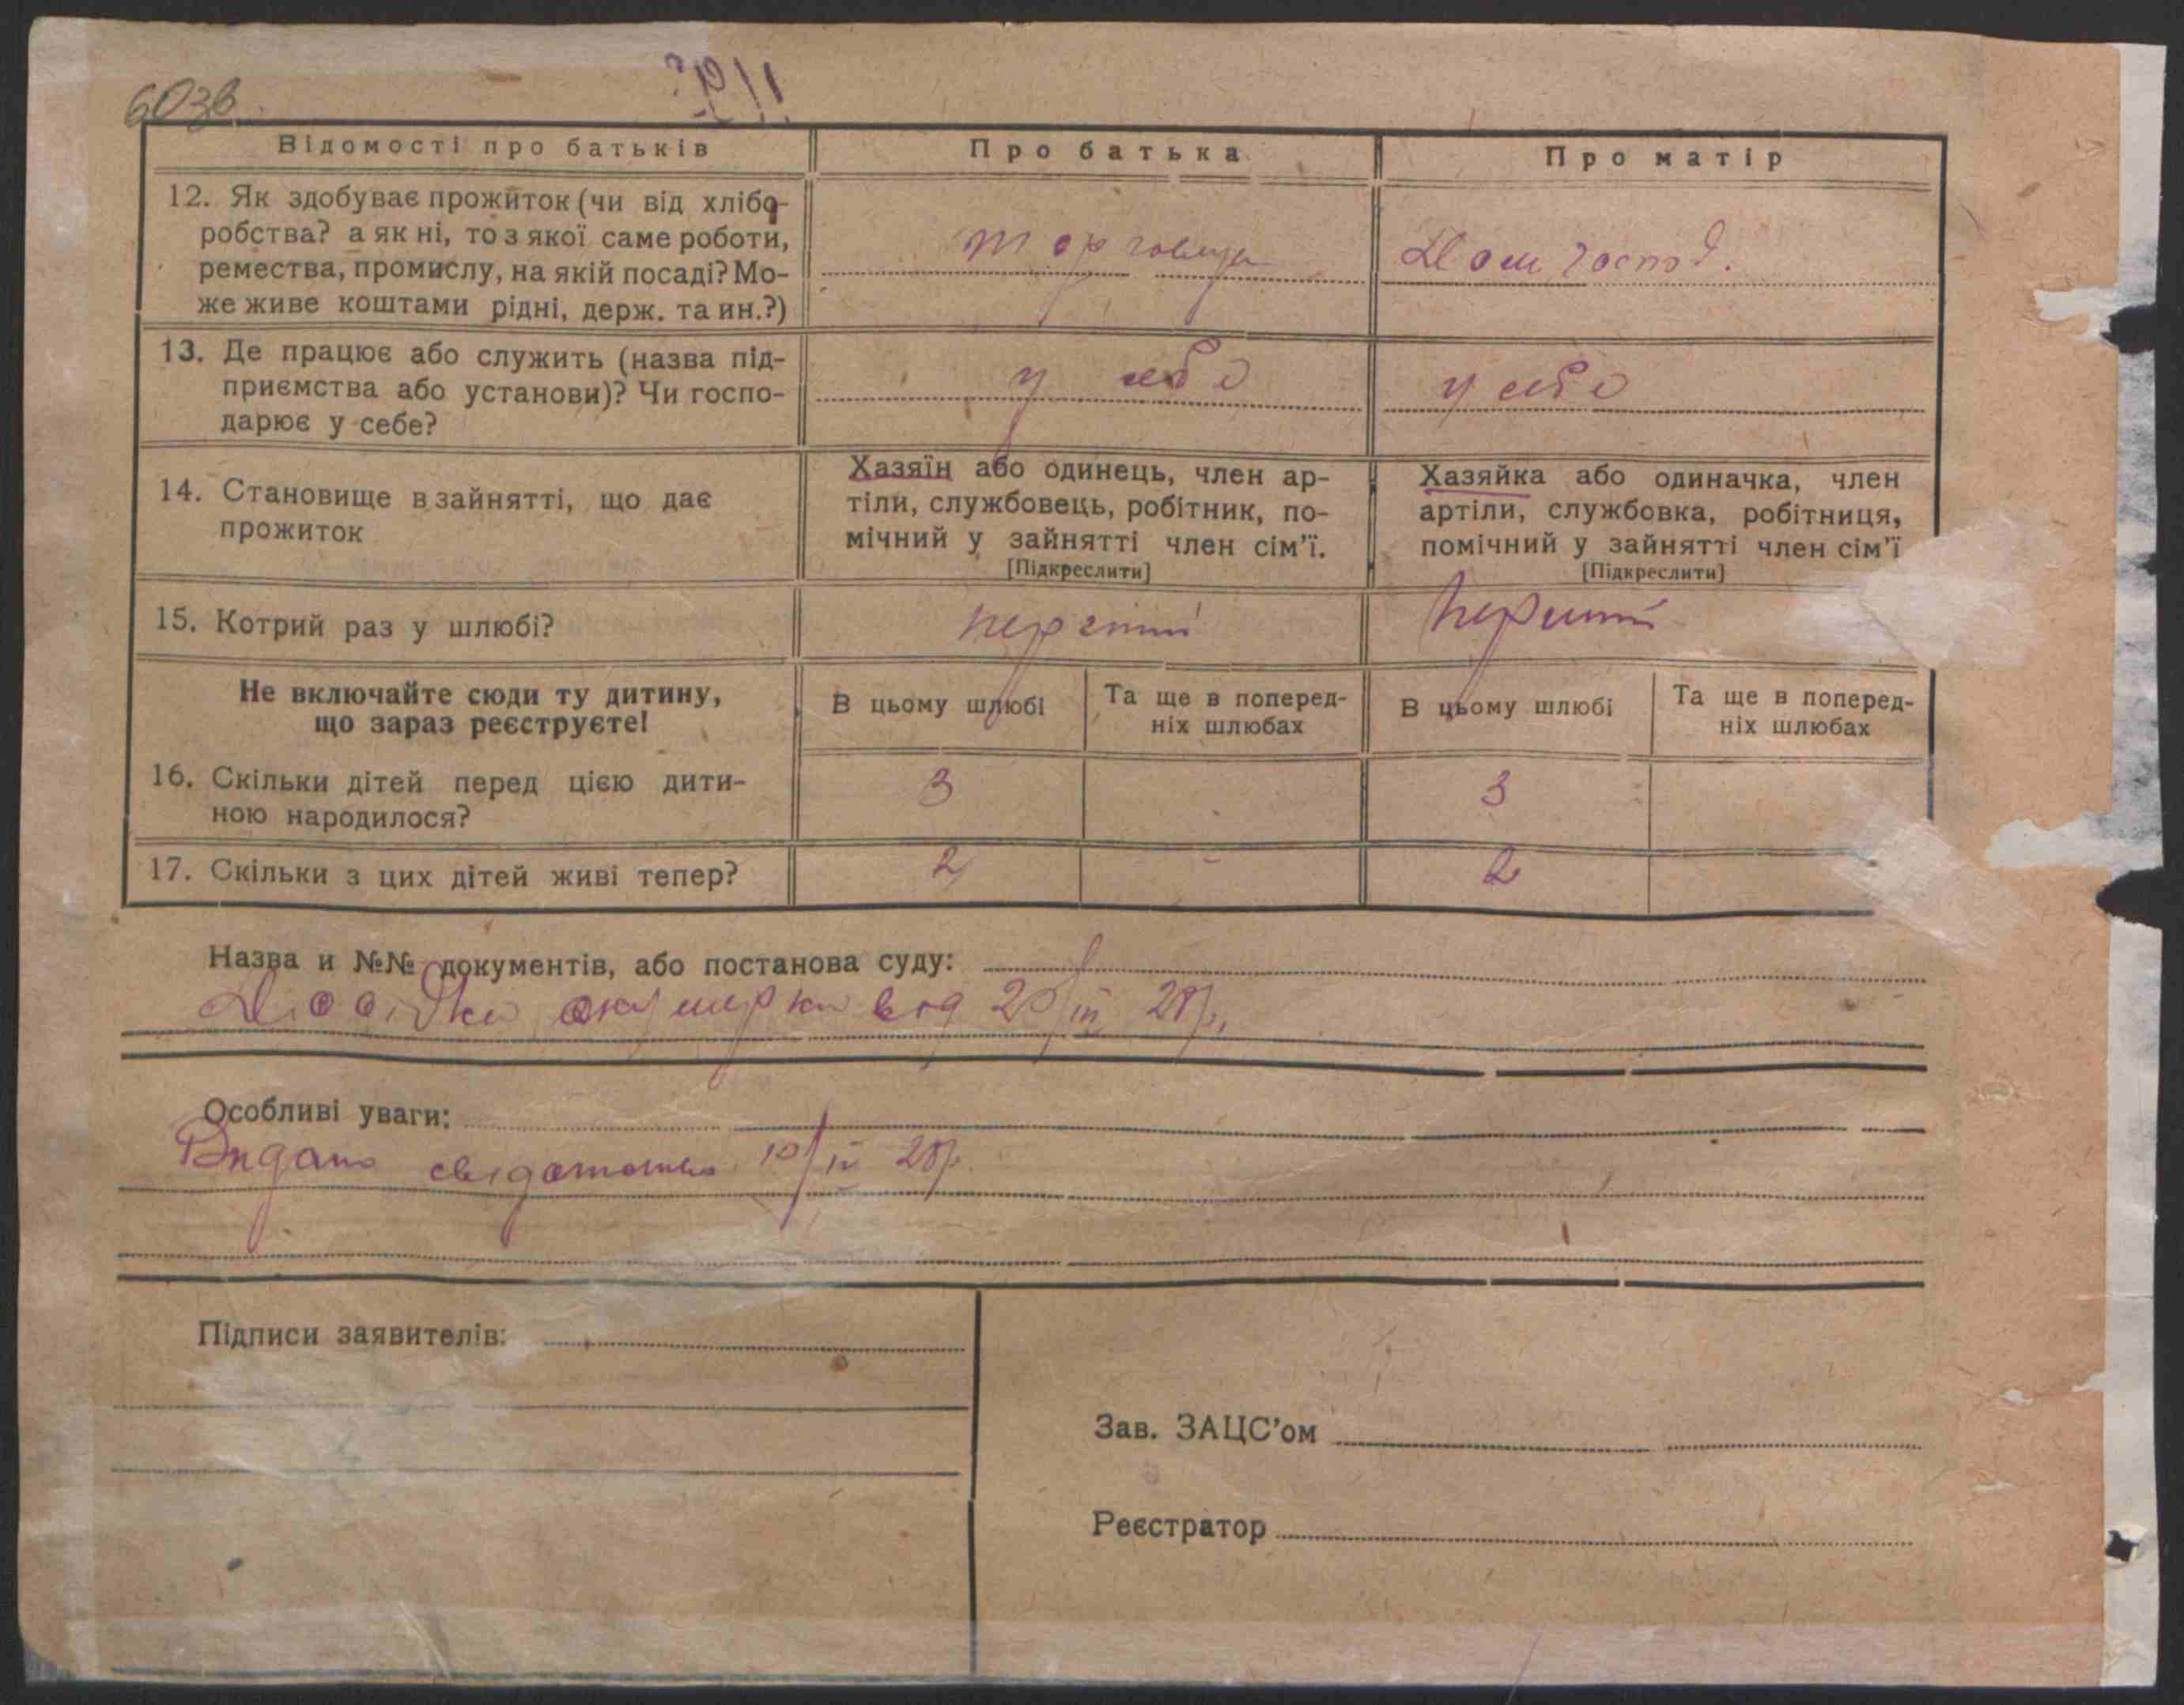 603в
Відомості про батьків
Про батька
Про матір
12. Як здобуває прожиток (чи від хлібо-
робства? а як ні, то з якої саме роботи,
ремества, промислу, на якій посаді? Мо-
же живе коштами рідні, держ. та ин.?)
торговця
Дом господ.
13. Де працює або служить (назва під-
приємства або установи)? Чи госпо-
дарює у себе?
у себе
у себе
14. Становище в зайнятті, що дає
прожиток
Хазяїн або одинець, член ар-
тіли, службовець, робітник, по-
мічний у зайнятті член сім'ї.
[Підкреслити]
Хазяйка або одиначка, член
артіли, службовка, робітниця,
помічний у зайнятті член сім'ї
[Підкреслити]
15. Котрий раз у шлюбі?
перший
перший
Не включайте сюди ту дитину,
що зараз реєструєте!
В цьому шлюбі
Та ще в поперед-
ніх шлюбах
В цьому шлюбі
Та ще в поперед-
ніх шлюбах
16. Скільки дітей перед цією дити-
ною народилося?
3
3
17. Скільки з цих дітей живі тепер?
2
-
2
Назва и №№ документів, або постанова суду:
акушерки від 20/III 28р.
Особливі уваги:
Видано свідоцтво 10/IV 28р.
Підписи заявителів:
Зав. ЗАЦС'ом
Реєстратор